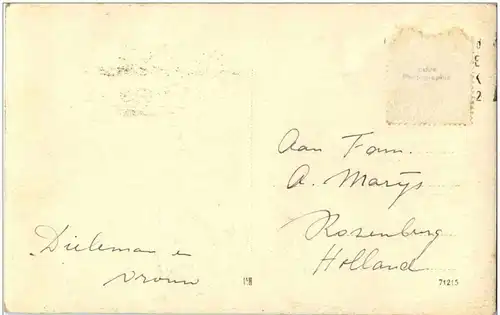 Carte
Photographie
Aan Fam.
A. Marijs
Rozenburg
Holland
Dieleman en
vrouw
71215